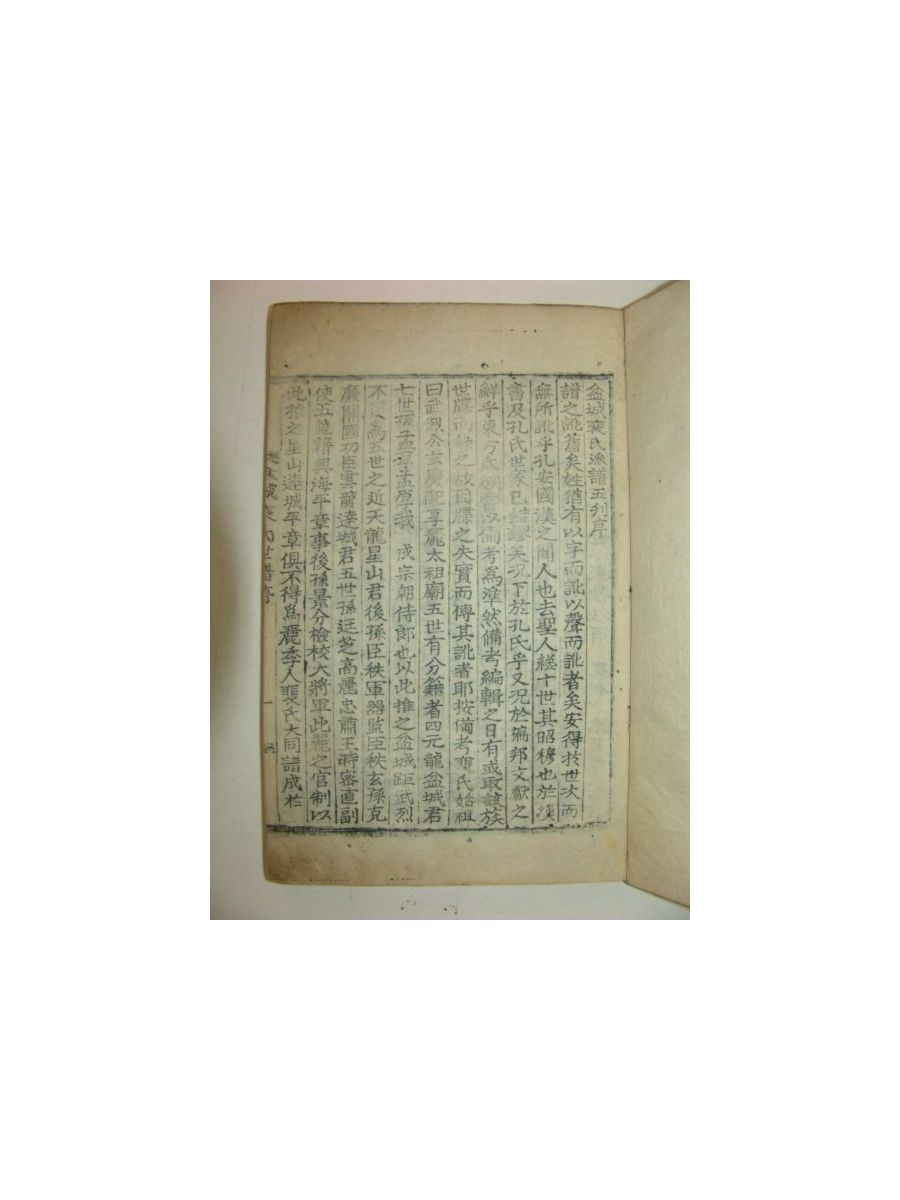 盆城裵氏派譜五刋序
譜之訛舊矣姓猶有以字而訛以聲而訛者矣安得於世次而
無所訛乎孔安國漢之聞人也去聖人纔十世其昭穆也於漢
書及孔氏世家已結謬矣况下於孔氏乎又况於褊邦文獻之
鮮乎東方氏族當以備考爲準然備考編輯之日有或取該族
世牒而錄之故因牒之失實而傳其訛者耶按備考裵氏始祖
曰武烈公玄慶配享麗太祖廟五世有分籍者四元龍盆城君
七世孫孟厚孟厚我 成宗朝侍郎也以此推之盆城距武烈
不 爲五世之近天龍星山君後孫臣秩軍器監臣秩玄孫克
廉開國功臣雲龍達城君五世孫廷芝高麗忠肅王時密直副
使五龍籍興海平章事後孫景分檢校大將軍此麗之官制以
此推之星山達城平章俱不得爲麗季人裵氏大同譜成於
盆城裵氏世譜序 一